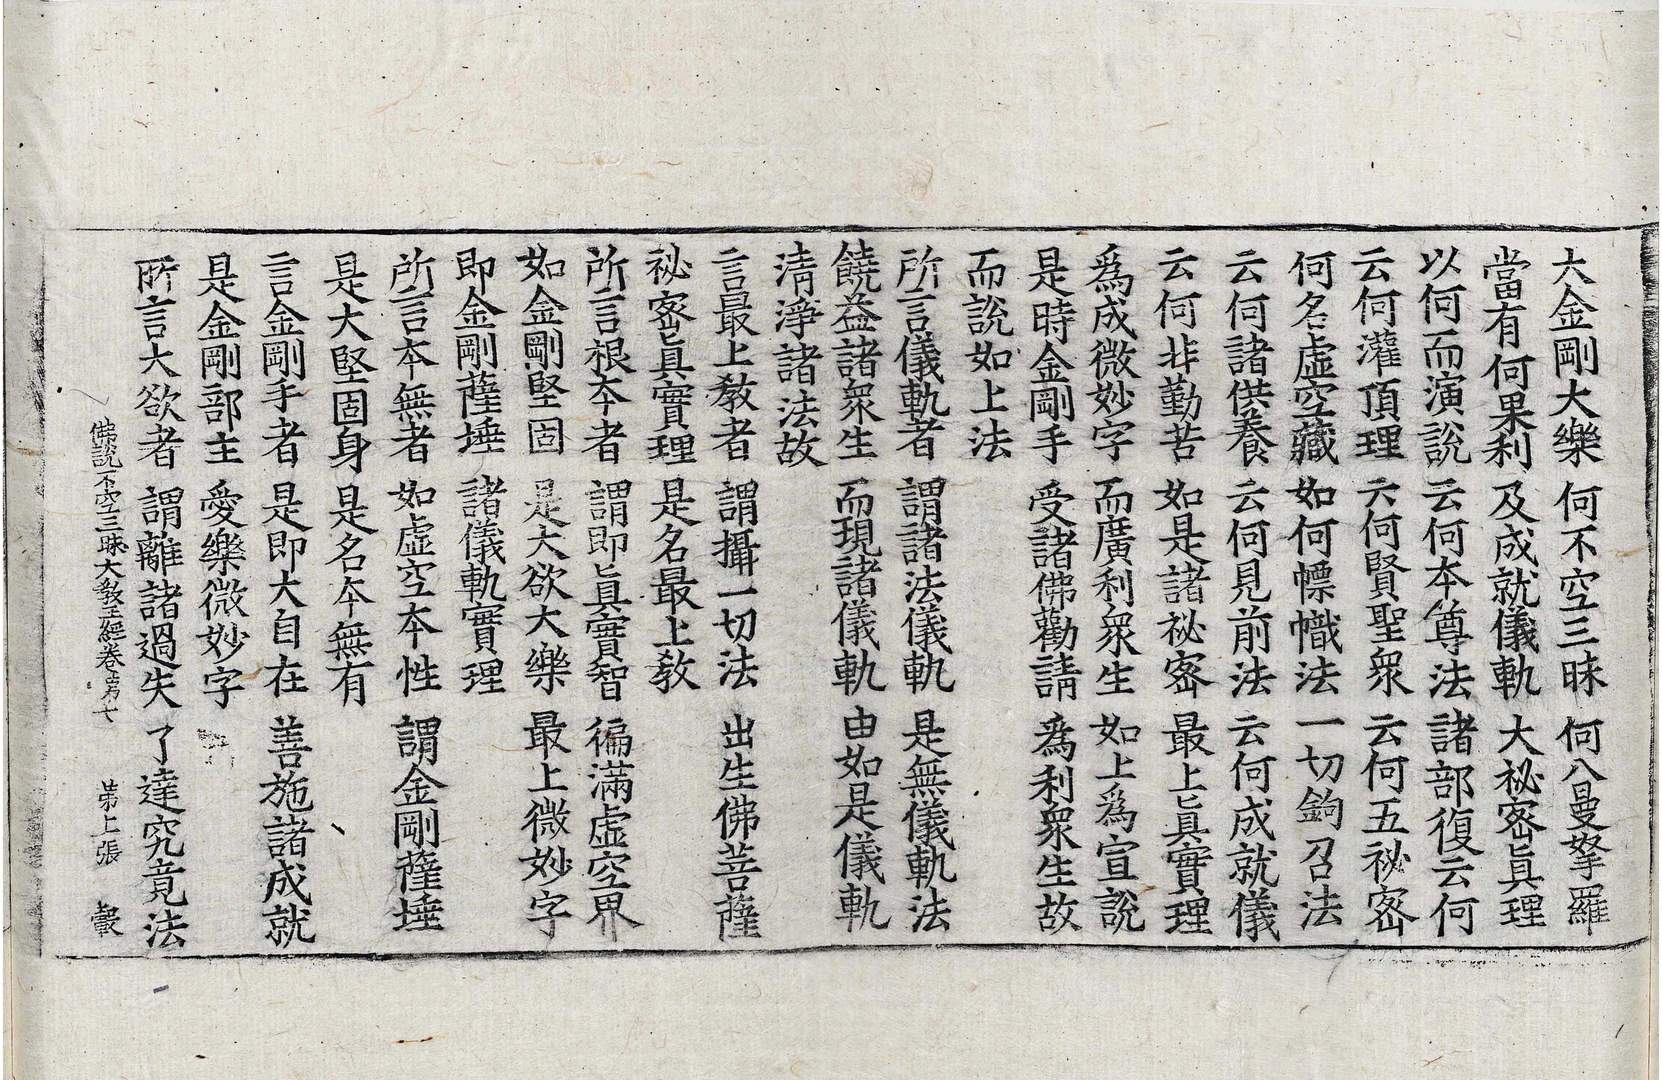 大金剛大樂　何不空三昧　何八曼拏羅
當有何果利　及成就儀軌　大祕密眞理
以何而演說　云何本尊法　諸部復云何
云何灌頂理　云何賢聖衆　云何五祕密
何名虛空藏　如何幖幟法　一切鉤召法
云何諸供養　云何見前法　云何成就儀
云何非勤苦　如是諸祕密　最上眞實理
爲成微妙字　而廣利衆生　如上爲宣說
是時金剛手　受諸佛勸請　爲利衆生故
而說如上法
所言儀軌者　謂諸法儀軌　是無儀軌法
饒益諸衆生　而現諸儀軌　由如是儀軌
清淨諸法故
言最上教者　謂攝一切法　出生佛菩薩
祕密眞實理　是名最上教
所言根本者　謂即眞實智　徧滿虛空界
如金剛堅固　是大欲大樂　最上微妙字
即金剛薩埵　諸儀軌實理
所言本無者　如虛空本性　謂金剛薩埵
是大堅固身　是名本無有
言金剛手者　是即大自在　善施諸成就
是金剛部主　愛樂微妙字
所言大欲者　謂離諸過失　了達究竟法
佛說不空三昧大教王經卷苐七　苐上張　轂